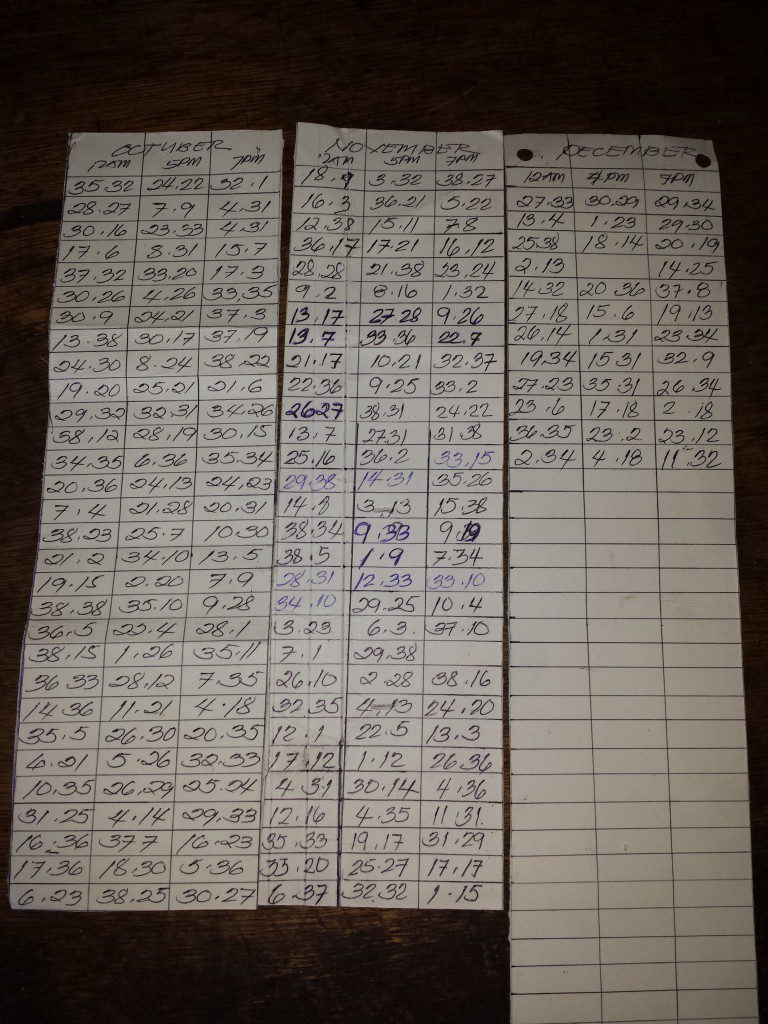 OCTUBER
12AM 5PM 7PM
35.32 24.22 32.1
28.27 7.9 4.31
30.16 23.33 4.31
17.6 8.31 15.7
37.32 33.20 17.3
30.26 4.26 33.35
30.9 24.21 37.3
13.38 30.17 37.19
24.30 8.24 38.22
19.20 25.21 21.6
29.32 32.31 34.26
38.12 28.19 30.15
34.35 6.36 35.34
20.36 24.13 24.23
7.4 21.28 20.31
38.23 25.7 10.30
21.2 34.10 13.5
19.15 2.20 7.9
38.38 35.10 9.28
36.5 22.4 28.1
38.15 1.26 35.11
36 33 28.12 7.35
14 36 11.21 4.18
35.5 26.30 20.35
6.21 5.26 32.33
10.35 26.29 25.24
31.25 4.14 29.33
16.36 37 7 16.23
17.36 18.30 5.36
6.23 38.25 30.27
NOVEMBER
12AM 5PM 7PM
18.9 3.32 38.27
16.3 36.21 5.22
12.38 15.11 7.8
36.17 17.21 16.12
28.28 21.38 23.24
9.2 8.16 1.32
13.17 27 28 9.26
19.7 33 36 22.7
21.17 10.21 32.37
22.36 9.25 33.2
2627 38.31 24.22
13.7 27.31 31.38
25.16 36.2 33.15
29.38 14.31 35.26
14.8 3.13 15.38
38.34 9.33 9.19
38.5 1.9 7.34
28.31 12.33 33.10
34.10 29.25 10.4
3.23 6.3. 37.10
7.1 29.38
26.10 2.28 38.16
32 35 4.13 24.20
12.1 22.5 13.3
17.12 1.12 26 36
4.31 30.14 4.36
12.16 4.35 11 31.
35.33 19.17 31.29
33.20 25.27 17.17
6.37 32.32 1.15
DECEMBER
12AM 4PM 7PM
27.33 30.29 29.34
13.4 1.23 29.30
25.38 18.14 20.19
2.13 14.25
14.32 20.36 37.8
27.18 15.6 19.13
26.14 1.31 23.34
19.34 15.31 32.9
27.23 35.31 26.34
23.6 17.18 2.18
36.35 23.2 23.12
2.34 4.18 11.32